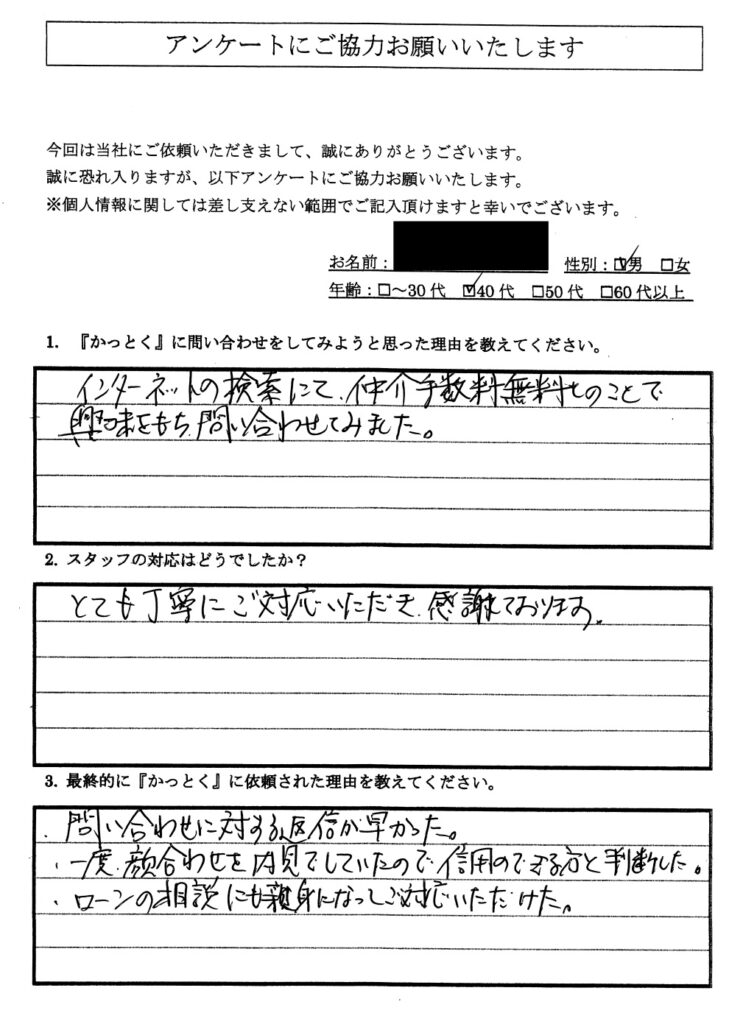 アンケートにご協力お願いいたします
今回は当社にご依頼いただきまして、誠にありがとうございます。
誠に恐れ入りますが、以下アンケートにご協力お願いいたします。
※個人情報に関しては差し支えない範囲でご記入頂けますと幸いでございます。
お名前： 性別：☑男 □女
年齢：□～30代 ☑40代 □50代 □60代以上
1. 『かっとく』に問い合わせをしてみようと思った理由を教えてください。
インターネットの検索にて、仲介手数料無料とのことで
興味をもち、問い合わせてみました。
2. スタッフの対応はどうでしたか？
とても丁寧にご対応いただき、感謝しております。
3. 最終的に『かっとく』に依頼された理由を教えてください。
・問い合わせに対する返信が早かった。
・一度、顔合わせを内見でしていたので信用のできる方と判断した。
・ローンの相談にも親身になってご対応いただけた。